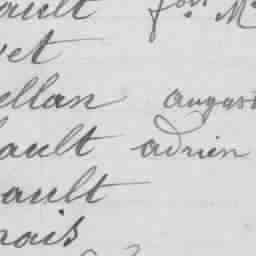 ault fois M
vet
ellan august
ault adrien
ault
nais